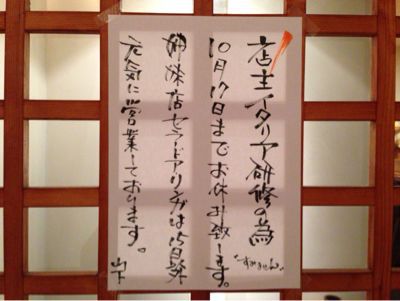 店主イタリア研修の為
"すみません"
10月17日までお休み致します。
姉妹店セラードアリンガは15日以外
元気に営業しております。
山下